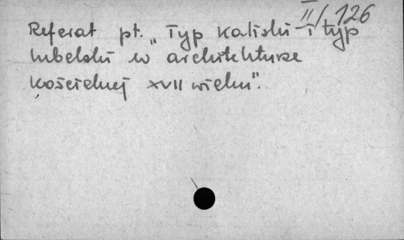 II/126
Referat pt. „Typ kaliski i typ
lubelski w architekturze
kościelnej XVII wieku".